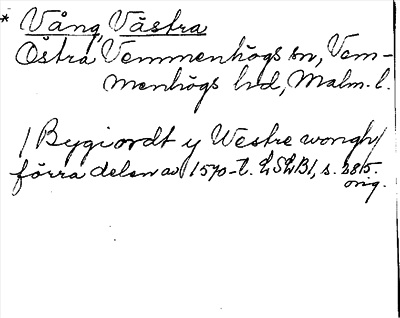 * Vång, Västra
Östra Vemmenhögs sn, Vem-
menhögs hd, Malm. l.
/Bygiordt y Westre wongh/
förra delen av 1570-t. LSLB1, s. 285.
orig.